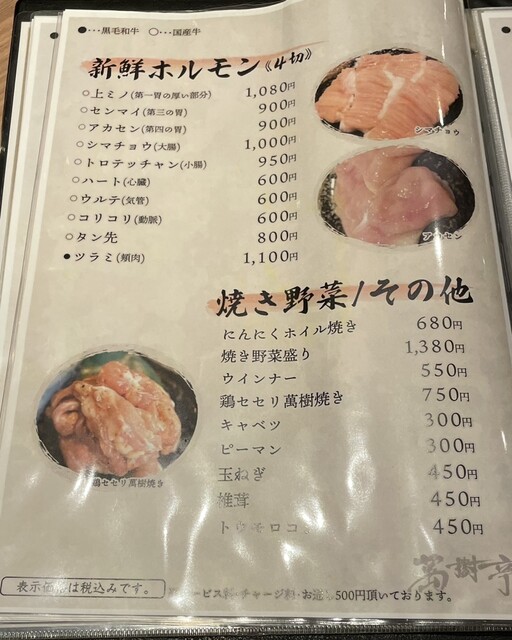 ●…黒毛和牛 ○…国産牛
新鮮ホルモン《4切》
○上ミノ(第一胃の厚い部分) 1,080円
○センマイ(第三の胃) 900円
○アカセン(第四の胃) 900円
○シマチョウ(大腸) 1,000円
○トロテッチャン(小腸) 950円
○ハート(心臓) 600円
○ウルテ(気管) 600円
○コリコリ(動脈) 600円
○タン先 800円
●ツラミ(頬肉) 1,100円
シマチョウ
アカセン
焼き野菜/その他
にんにくホイル焼き 680円
焼き野菜盛り 1,380円
ウインナー 550円
鶏セセリ萬樹焼き 750円
キャベツ 300円
ピーマン 300円
玉ねぎ 450円
椎茸 450円
トウモロコ 450円
鶏セセリ萬樹焼き
萬樹亭
表示価格は税込みです。
サービス料・チャージ料・お通し500円頂いております。